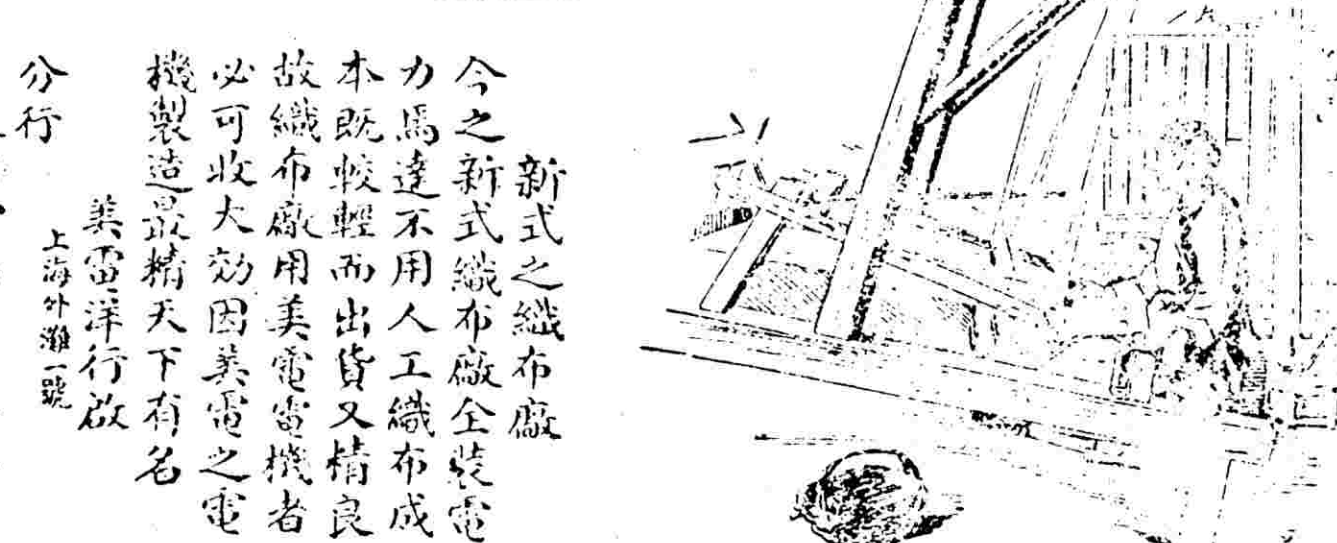 新式之織布廠
今之新式織布廠全裝電
力馬達不用人工織布成
本既較輕而出貨又精良
故織布廠用美電電機者
必可收大効因美電之電
機製造最精天下有名
美電洋行啟
上海外灘一號
分行